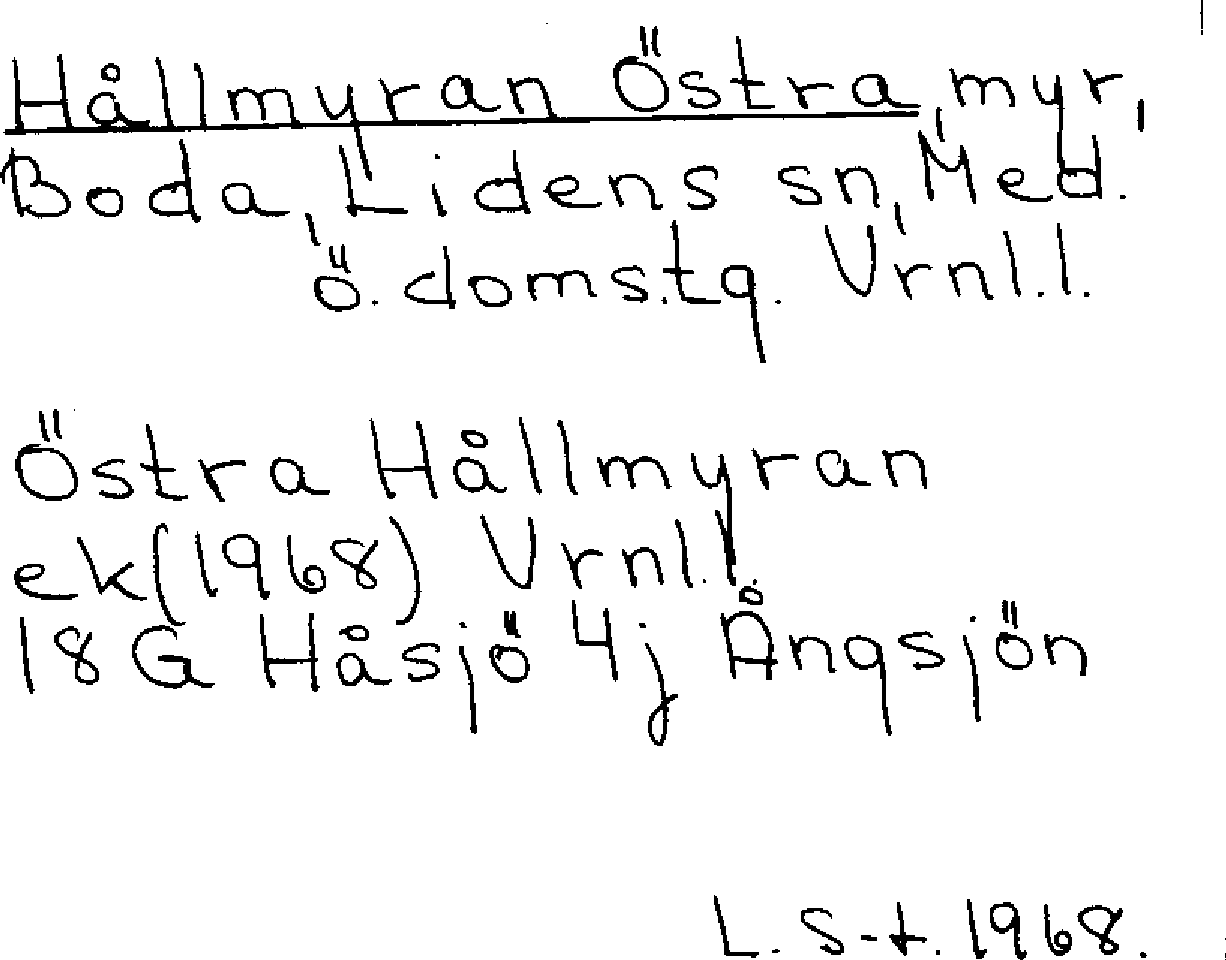 Hållmyran Östra, myr,
Boda, Lidens sn, Med.
ö. doms.tg. Vrnl.l.
Östra Hållmyran
ek(1968) Vrnl.l.
18G Håsjö 4j Ångsjön
L. S-t. 1968.